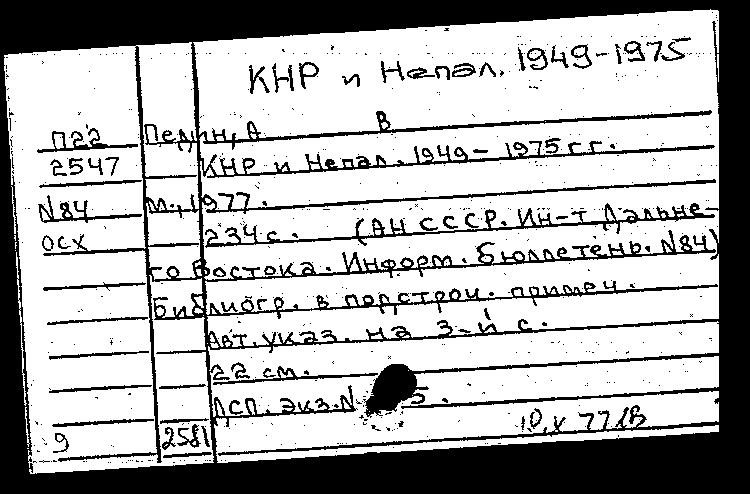 КНР и Непал. 1949-1975
П22 Педин, А В
2547 КНР и Непал. 1949-1975 г.г.
N84 М., 1977.
ОСХ 234 с. (АН СССР. Ин-т Дальне-
го Востока. Информ. бюллетень. N84)
Библиогр. в подстроч. примеч.
Авт. указ. на 3-й с.
22 см.
ДСП. экз. N 5.
9 2581